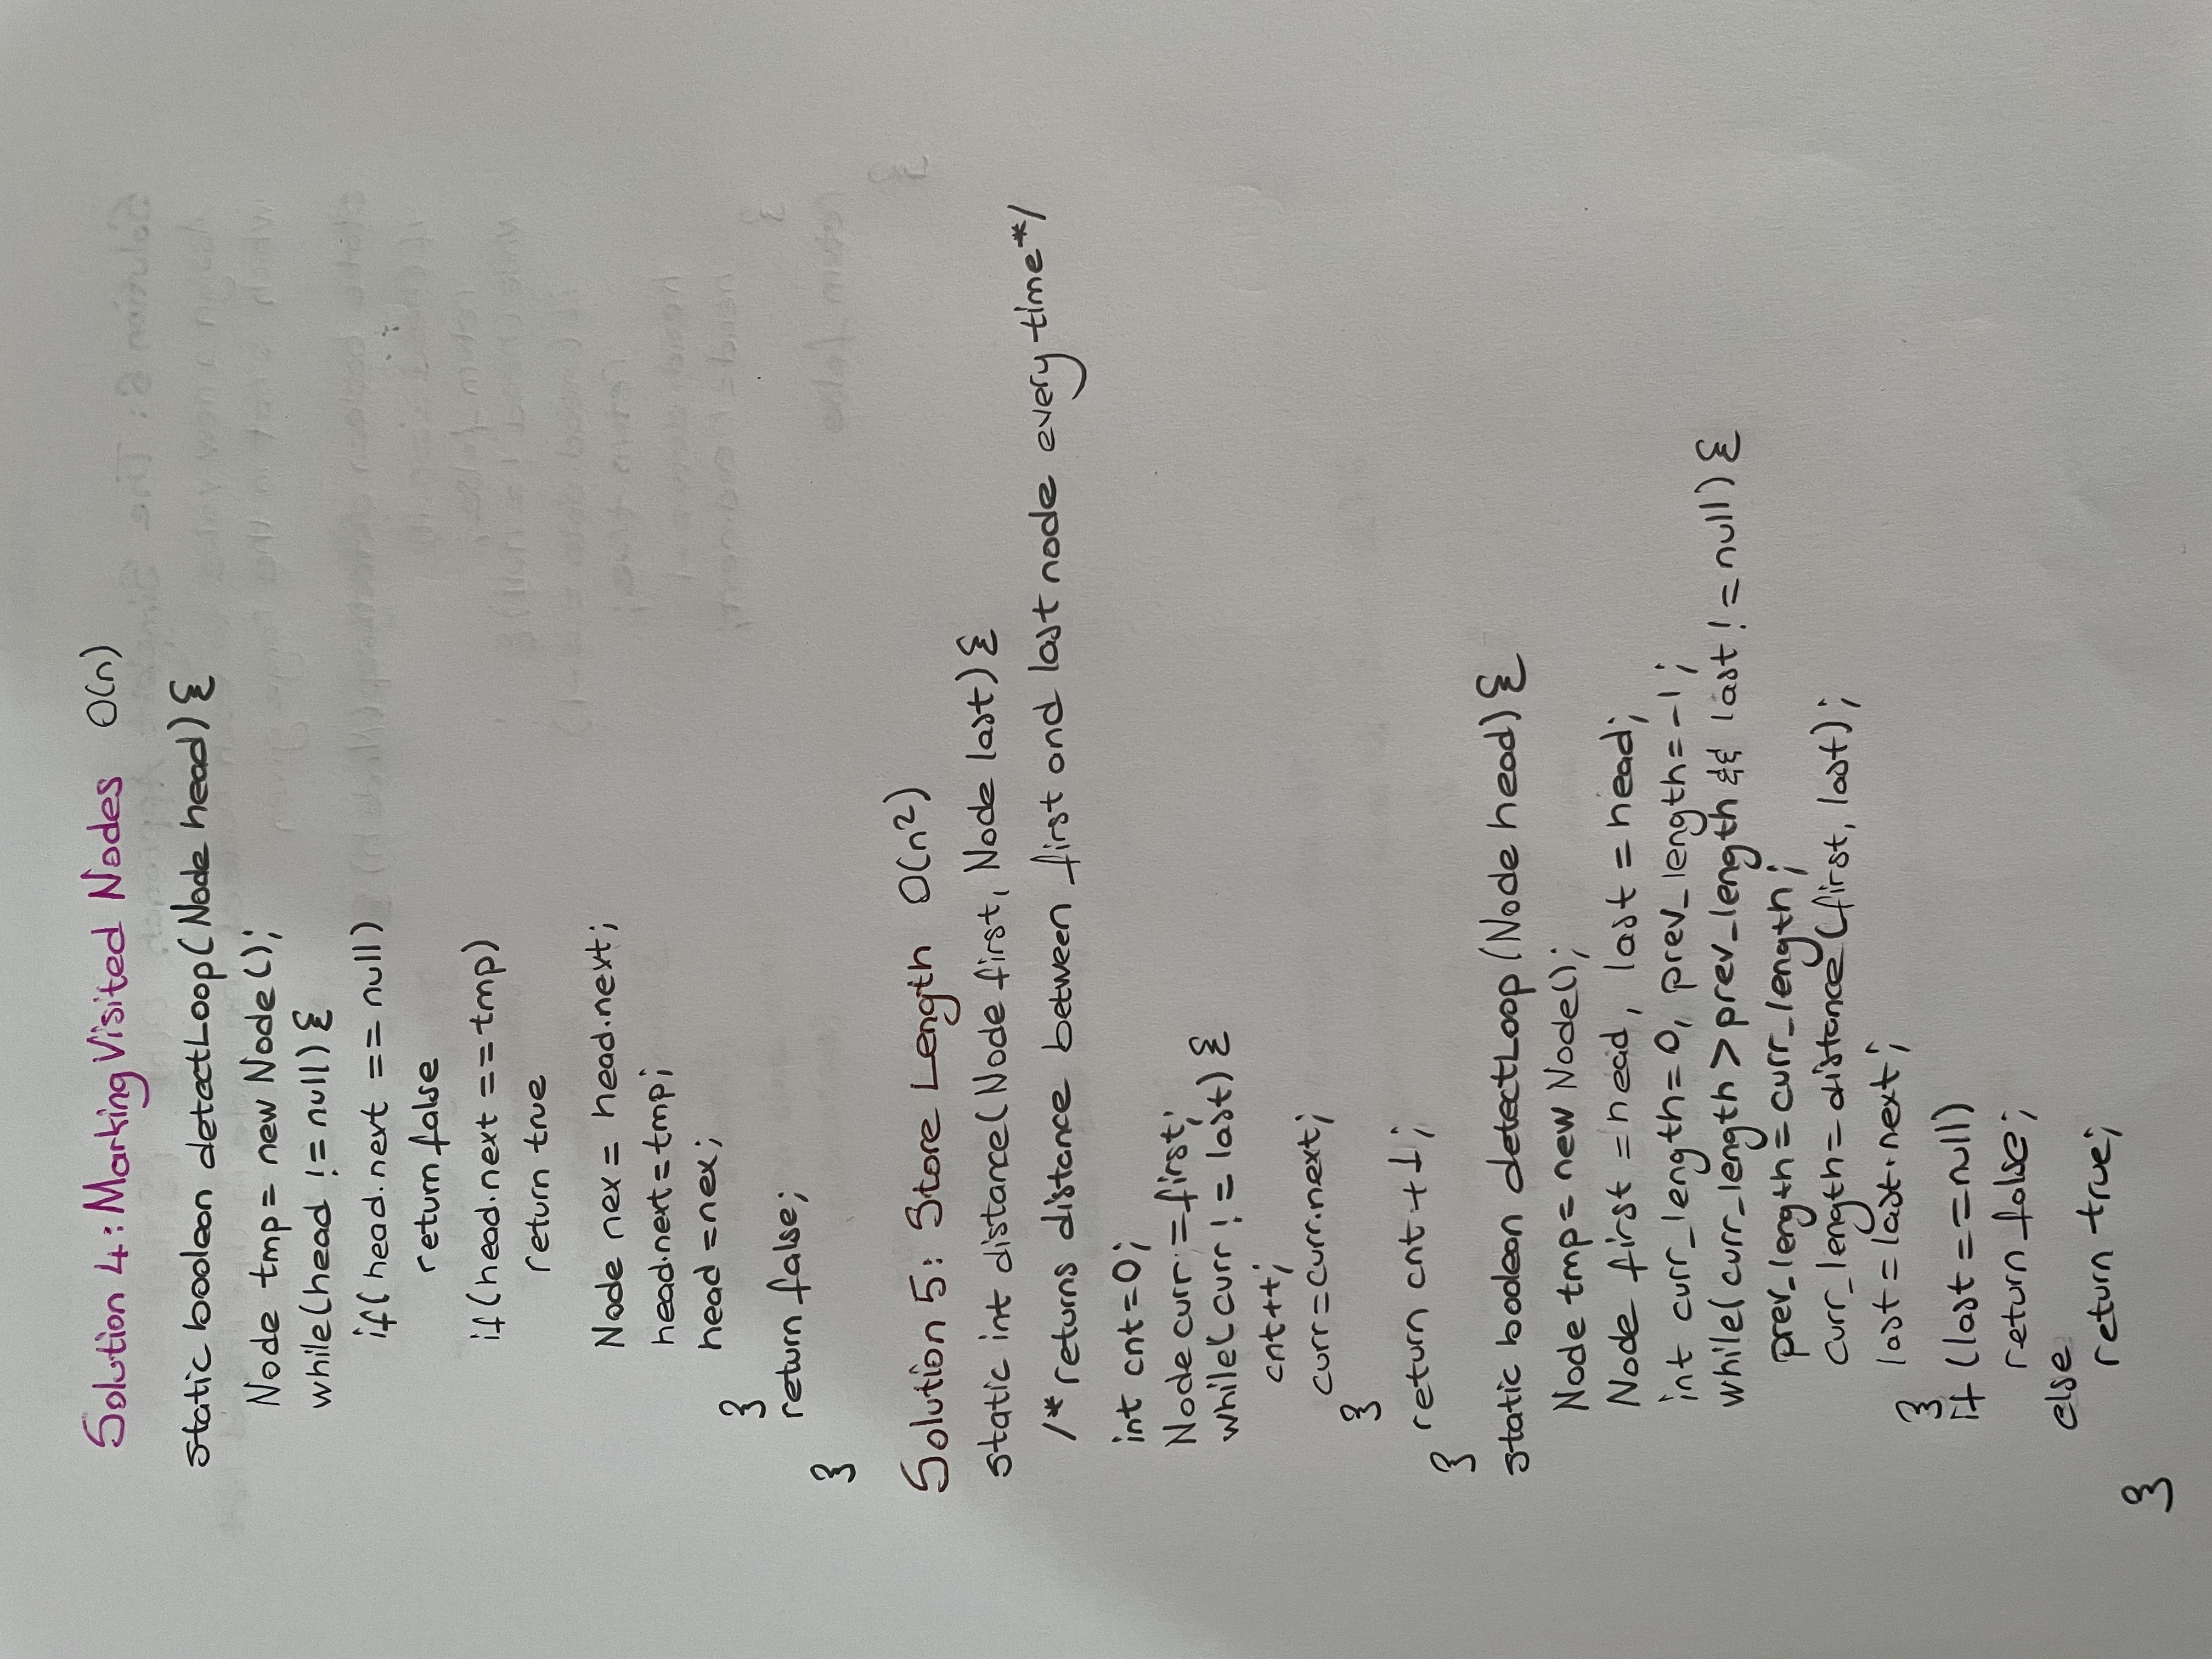 Solution 4: Marking Visited Nodes O(n)
static boolean detectLoop(Node head){
Node tmp = new Node();
while(head != null){
if(head.next == null)
return false
if(head.next == tmp)
return true
Node nex = head.next;
head.next = tmp;
head = nex;
}
return false;
}
Solution 5: Store Length O(n²)
static int distance(Node first, Node last){
/* returns distance between first and last node every time */
int cnt = 0;
Node curr = first;
while(curr != last){
cnt++;
curr = curr.next;
}
return cnt + 1;
}
static boolean detectLoop(Node head){
Node tmp = new Node();
Node first = head, last = head;
int curr_length = 0, prev_length = -1;
while(curr_length > prev_length && last != null){
prev_length = curr_length;
curr_length = distance(first, last);
last = last.next;
}
if (last == null)
return false;
else
return true;
}